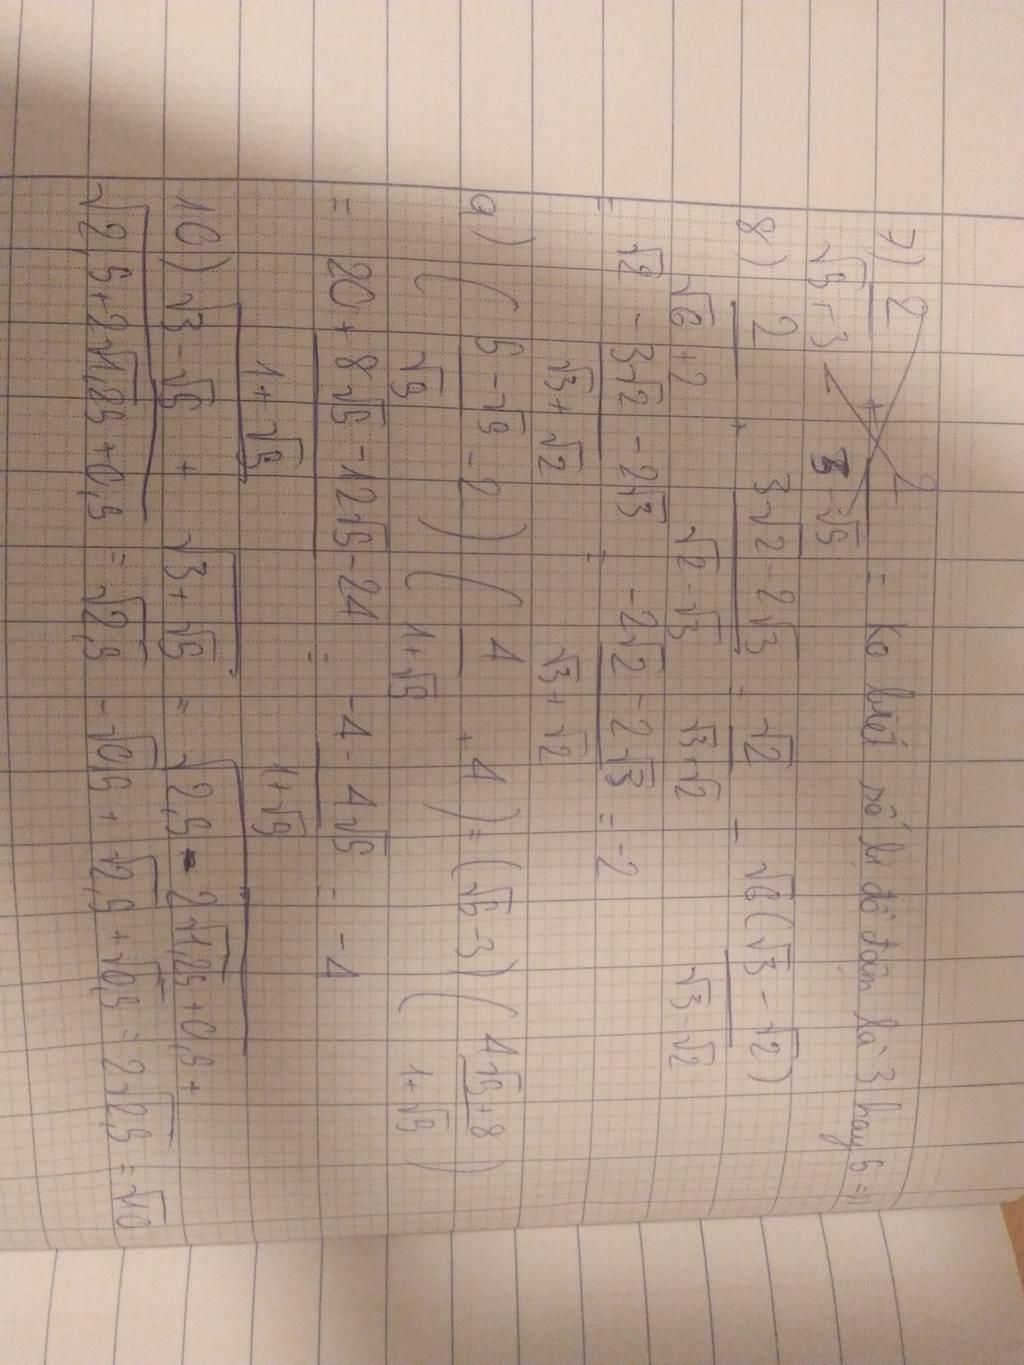 7) 2/(√5+3) + 2/(3-√5) = ko biết số bị đè đậm là 3 hay 5 =))
8) 2/(√6+2) + (3√2-2√3)/(√2-√3) - √2/(√3+√2) - √6(√3-√2)/(√3-√2)
= √2 - (3√2-2√3)/(√3+√2) = (-2√2-2√3)/(√3+√2) = -2
9) ((5-√5)/√5 - 2)(4/(1+√5) + 4) = (√5-3)((4√5+8)/(1+√5))
= (20+8√5-12√5-24)/(1+√5) = (-4-4√5)/(1+√5) = -4
10) √(3-√5) + √(3+√5) = √(2,5-2√1,25+0,5) +
√(2,5+2√1,25+0,5) = √2,5 - √0,5 + √2,5 + √0,5 = 2√2,5 = √10